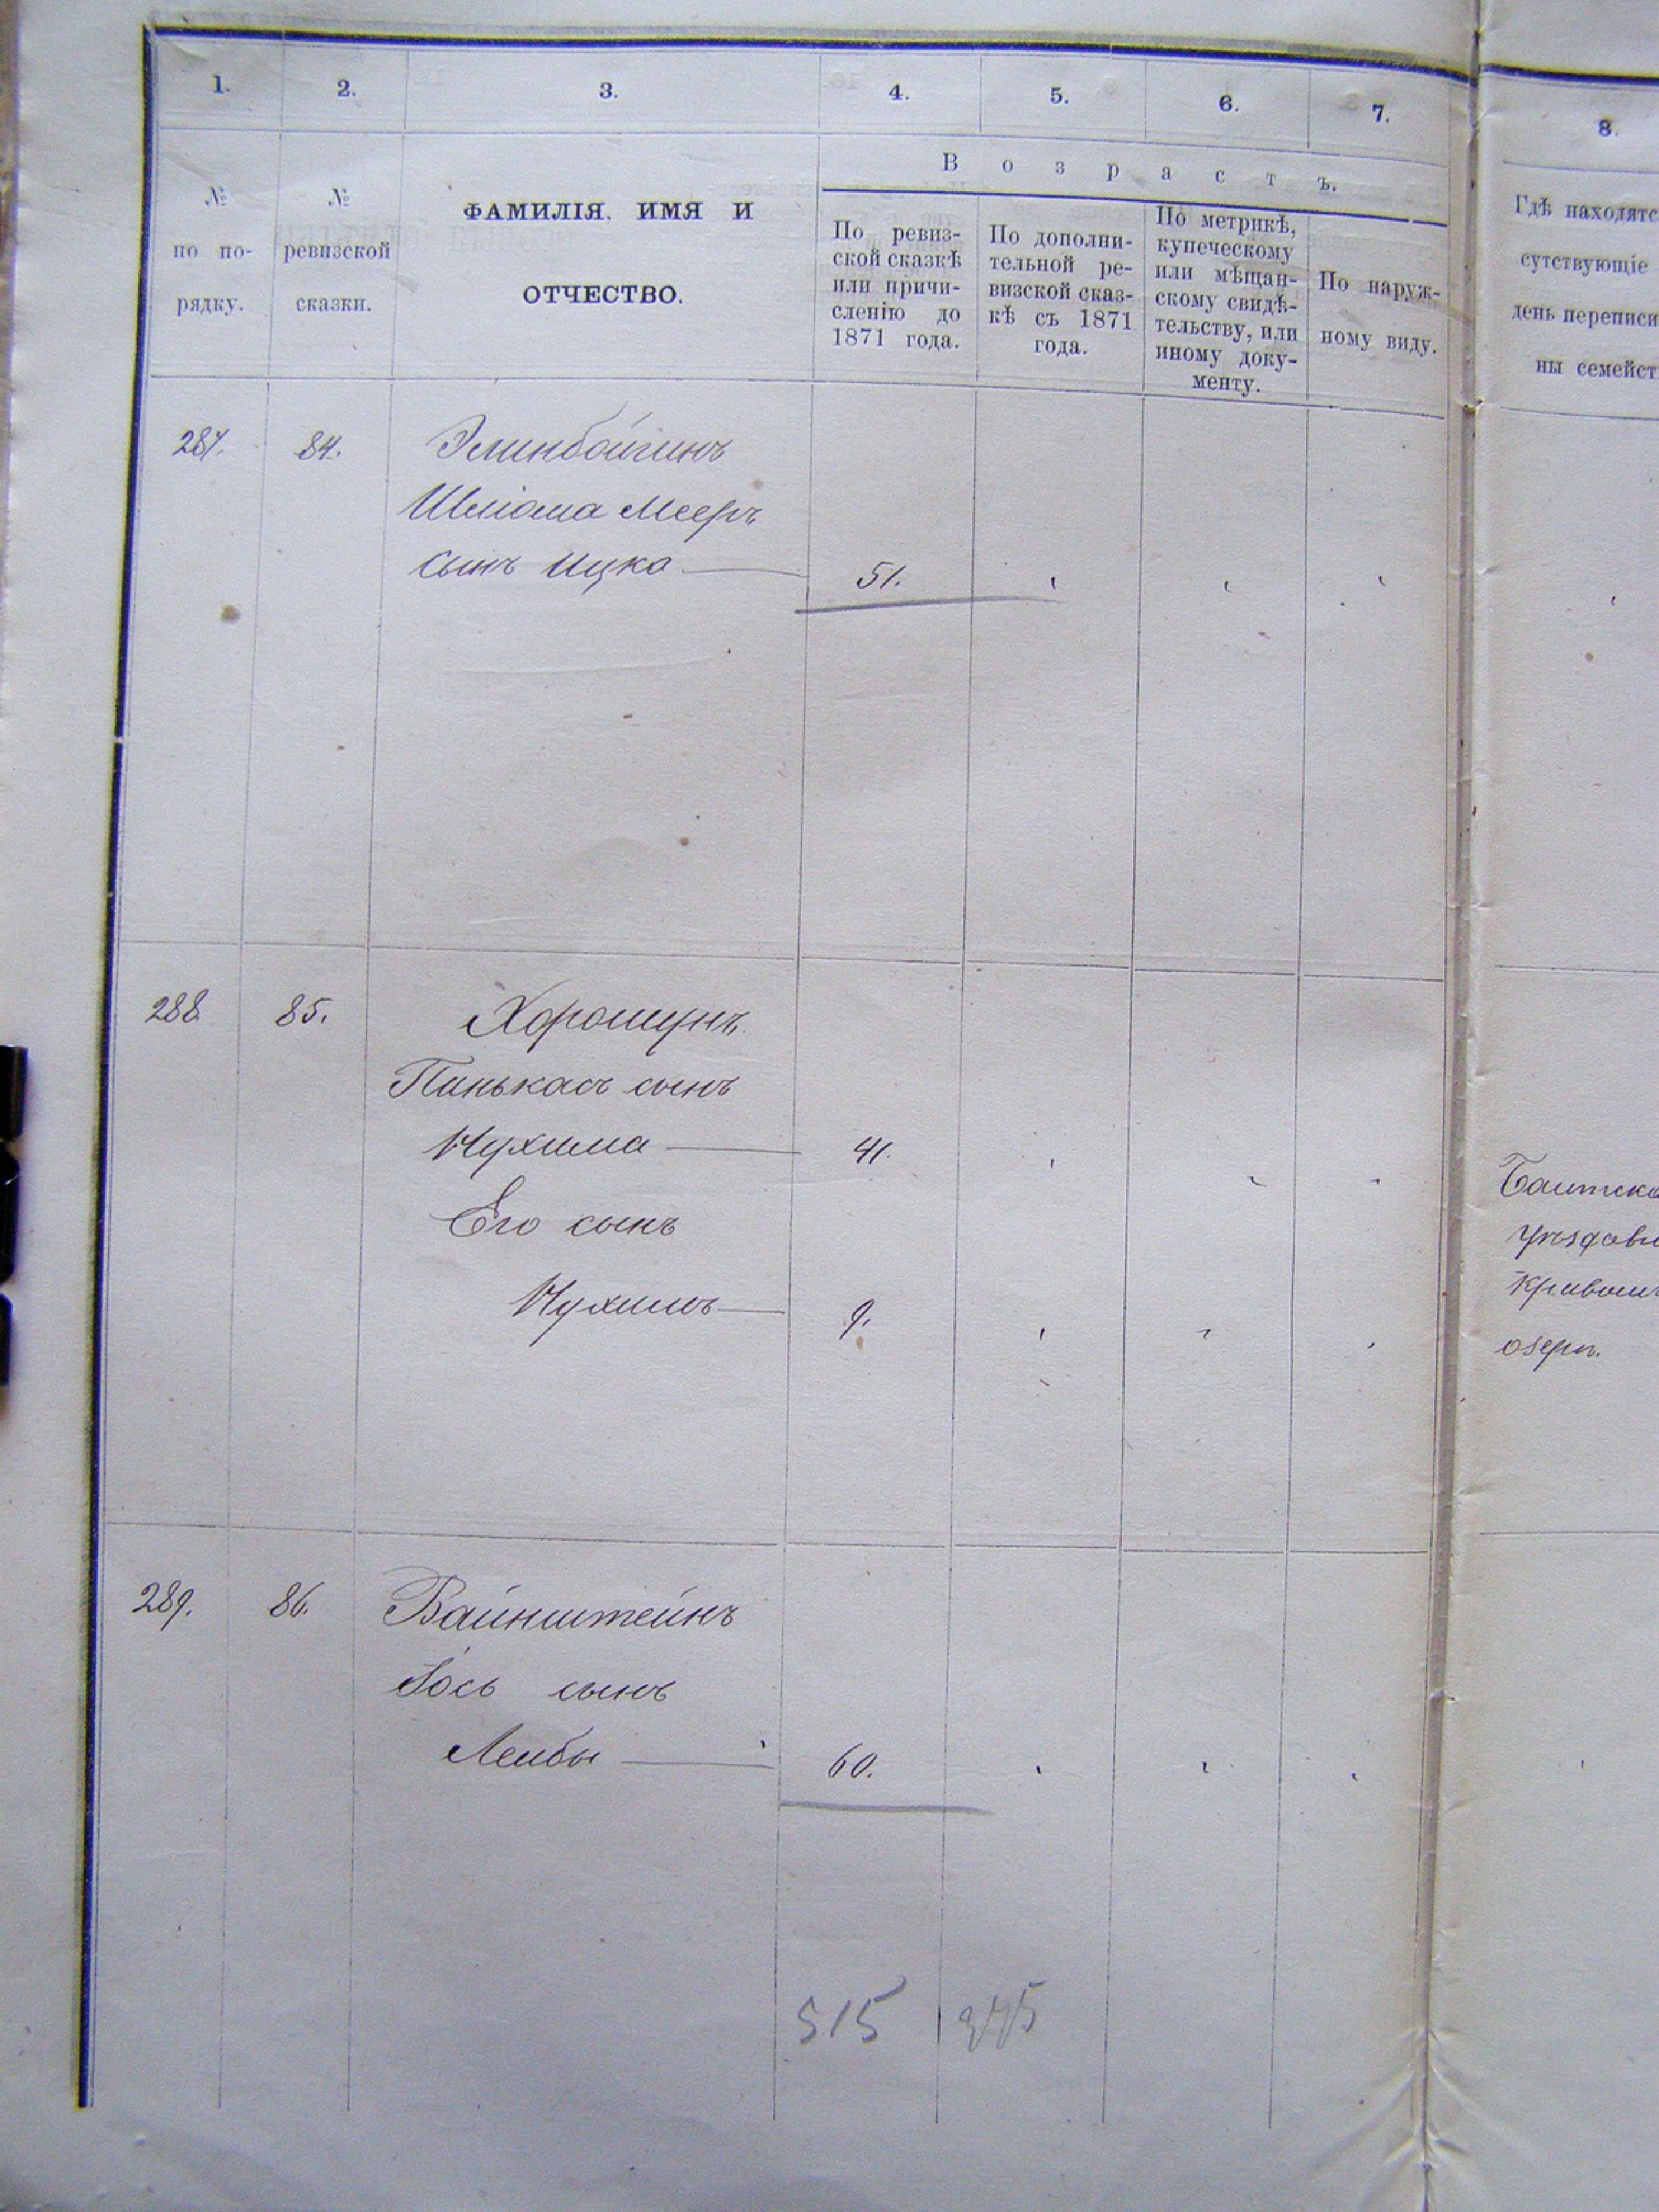 1. 2. 3. 4. 5. 6. 7. 8.
В о з р а с т ъ.
№
по по-
рядку.
№
ревизской
сказки.
ФАМИЛІЯ, ИМЯ И
ОТЧЕСТВО.
По ревиз-
ской сказкѣ
или причи-
сленію до
1871 года.
По дополни-
тельной ре-
визской сказ-
кѣ съ 1871
года.
По метрикѣ,
купеческому
или мѣщан-
скому свидѣ-
тельству, или
иному доку-
менту.
По наруж-
ному виду.
Гдѣ находятс
сутствующіе
день переписи
ны семейст
287. 84.
Шліома Мееръ
сынъ Ицка 51.
288 85. Хорошунъ
Пинькасъ сынъ
Нухима 41.
Его сынъ
Нухимъ 9.
Балтско
уѣздавъ
Кривомъ
озерѣ.
289. 86. Вайнштейнъ
Іось сынъ
Лейбы 60.
515 345